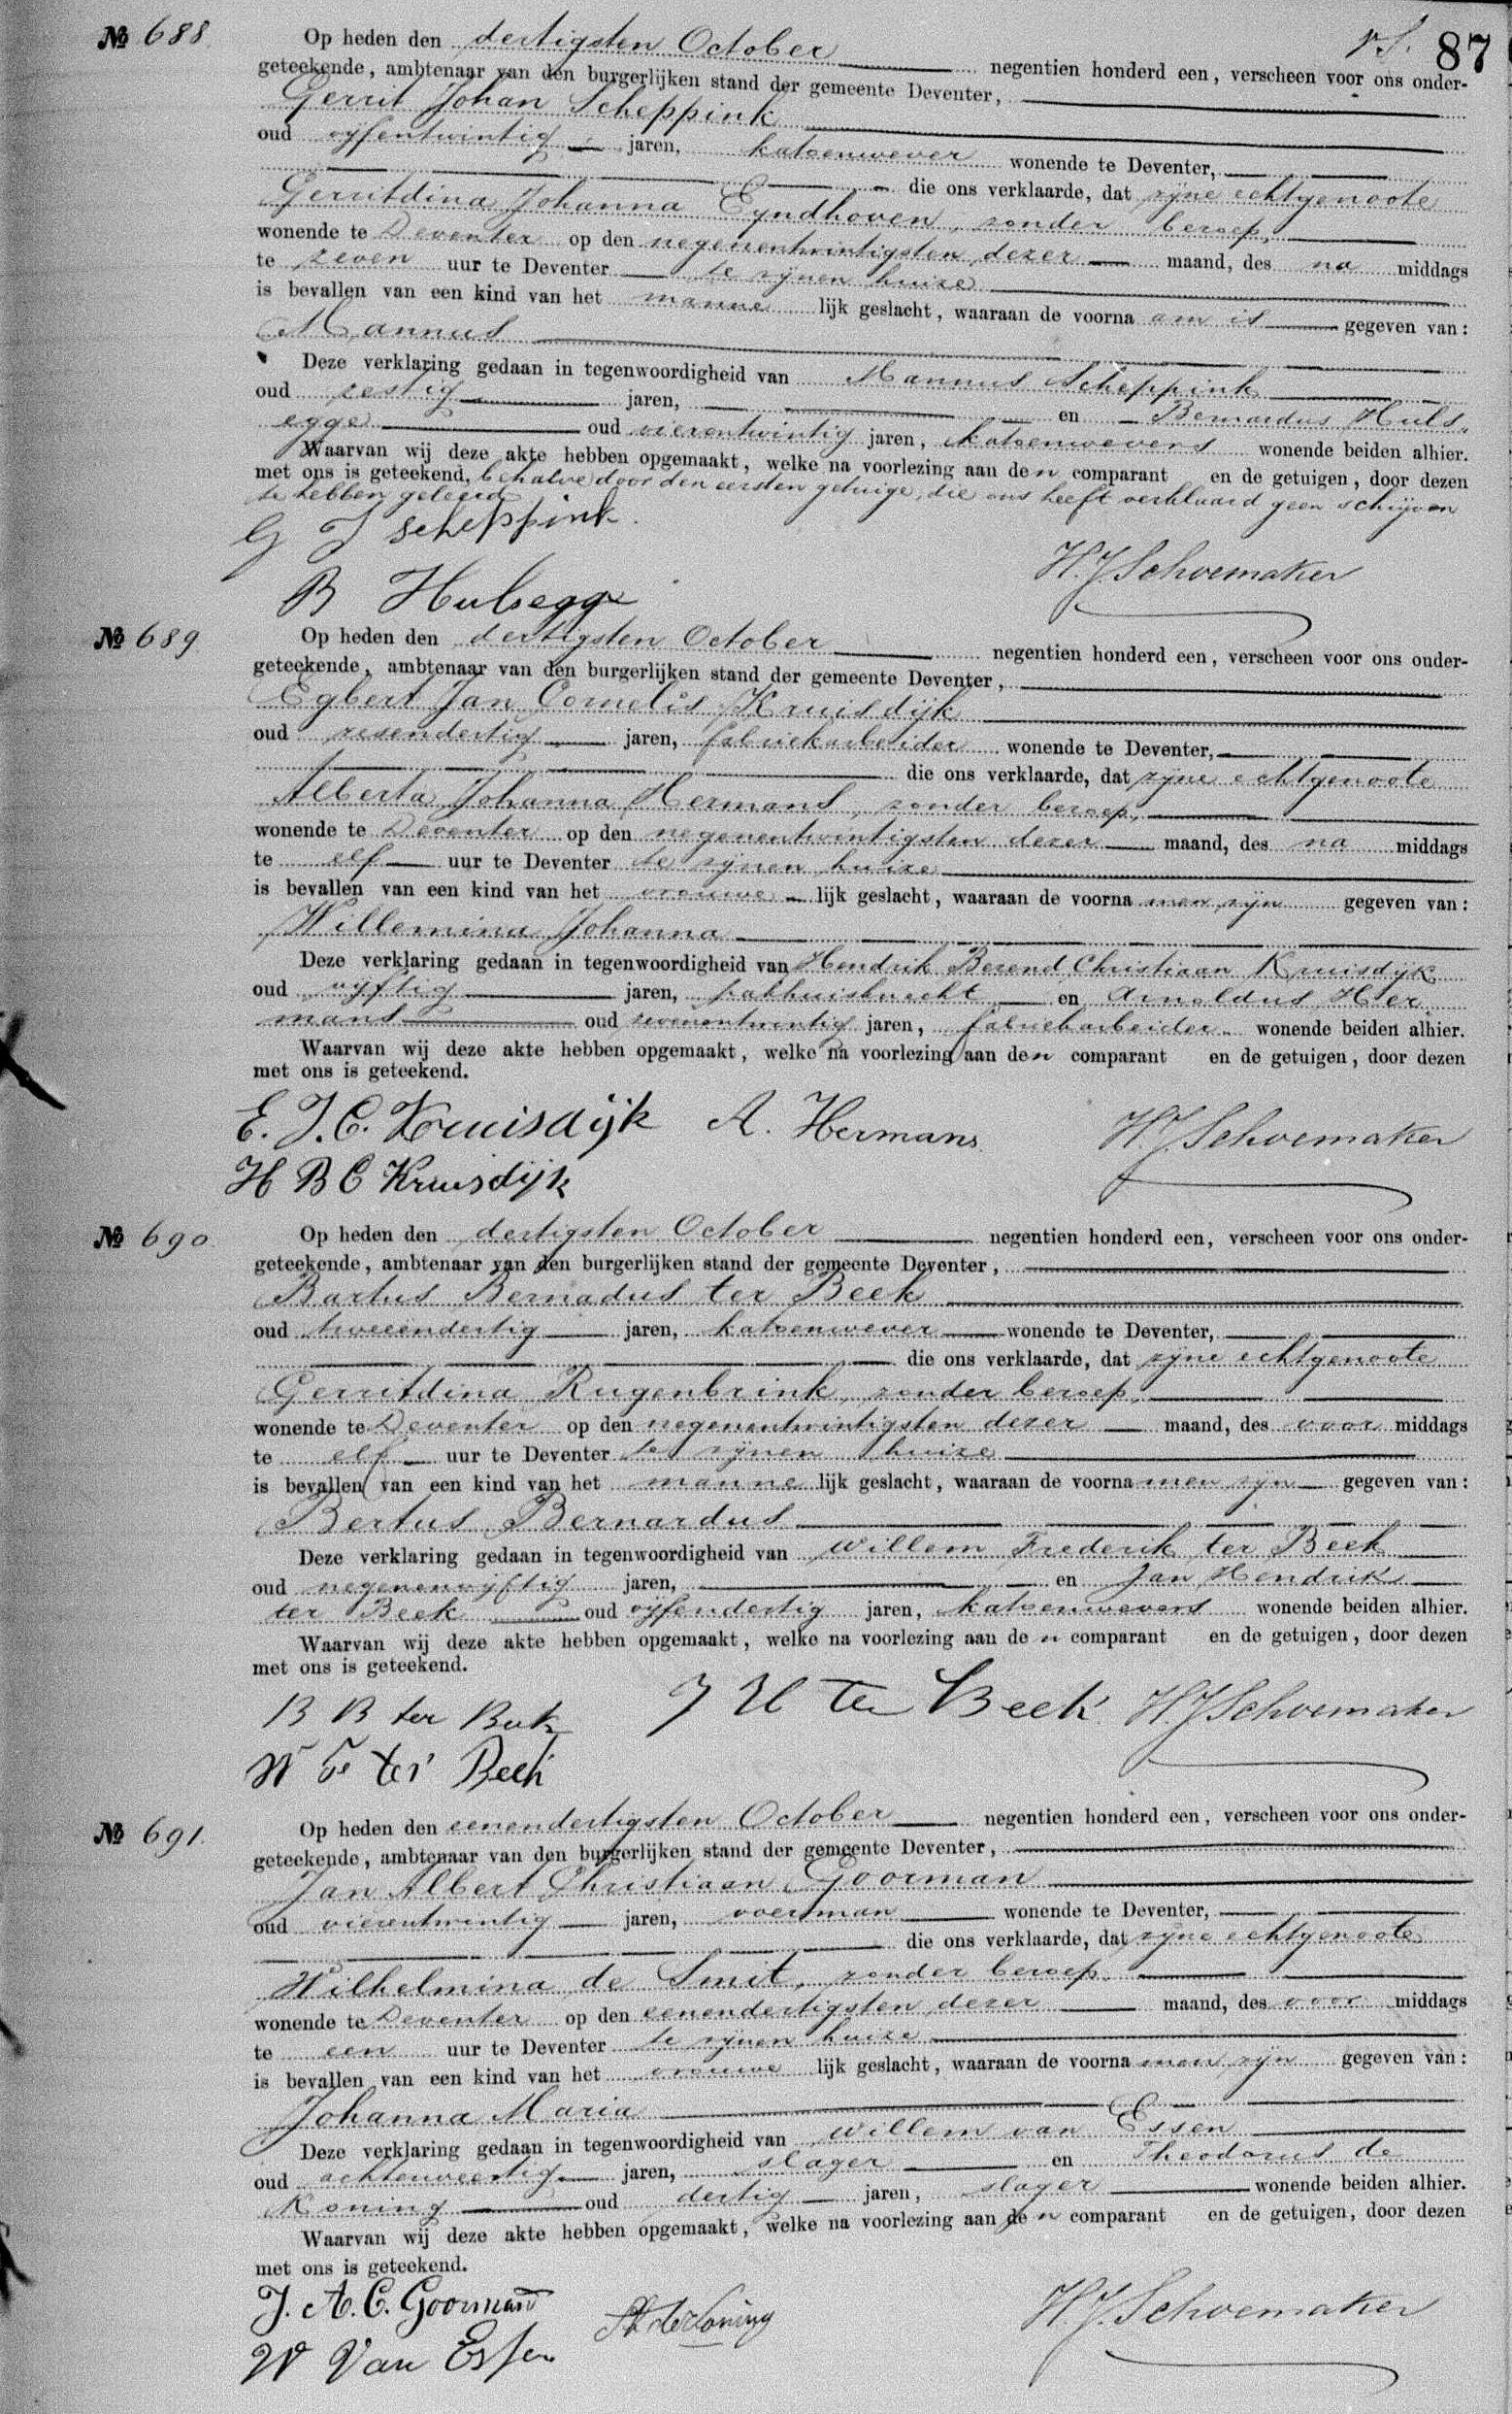 № 688. Op heden den dertigsten October negentien honderd een, verscheen voor ons onder- 87
geteekende, ambtenaar van den burgerlijken stand der gemeente Deventer,
Gerrit Johan Scheppink
oud vijfentwintig jaren, katoenwever wonende te Deventer,
die ons verklaarde, dat zijne echtgenoote
Gerritdina Johanna Eyndhoven, zonder beroep,
wonende te Deventer op den negenentwintigsten dezer maand, des na middags
te zeven uur te Deventer te zijnen huize
is bevallen van een kind van het manne lijk geslacht, waaraan de voorna am is gegeven van:
Mannus
Deze verklaring gedaan in tegenwoordigheid van Mannus Scheppink
oud zestig jaren, en Bernardus Huls-
egge oud vierentwintig jaren, katoenwevers wonende beiden alhier.
Waarvan wij deze akte hebben opgemaakt, welke na voorlezing aan den comparant en de getuigen, door dezen
met ons is geteekend, behalve door den eersten getuige, die ons heeft verklaard geen schrijven
te hebben geleerd
G J Scheppink.
H. J. Schoemaker
B Hulsegge
№ 689. Op heden den dertigsten October negentien honderd een, verscheen voor ons onder-
geteekende, ambtenaar van den burgerlijken stand der gemeente Deventer,
Egbert Jan Cornelis Kruisdijk
oud zesendertig jaren, fabriekarbeider wonende te Deventer,
die ons verklaarde, dat zijne echtgenoote
Alberta Johanna Hermans, zonder beroep,
wonende te Deventer op den negenentwintigsten dezer maand, des na middags
te elf uur te Deventer te zijnen huize
is bevallen van een kind van het vrouwe lijk geslacht, waaraan de voorna men zijn gegeven van:
Willemina Johanna
Deze verklaring gedaan in tegenwoordigheid van Hendrik Berend Christiaan Kruisdijk
oud vijftig jaren, pakhuisknecht en Arnoldus Her
mans oud zevenentwintig jaren, fabriekarbeider wonende beiden alhier.
Waarvan wij deze akte hebben opgemaakt, welke na voorlezing aan den comparant en de getuigen, door dezen
met ons is geteekend.
E. J. C. Kruisdijk A. Hermans. H. J. Schoemaker
H B C Kruisdijk
№ 690. Op heden den dertigsten October negentien honderd een, verscheen voor ons onder-
geteekende, ambtenaar van den burgerlijken stand der gemeente Deventer,
Bartus Bernadus ter Beek
oud tweeendertig jaren, katoenwever wonende te Deventer,
die ons verklaarde, dat zijne echtgenoote
Gerritdina Rugenbrink, zonder beroep,
wonende te Deventer op den negenentwintigsten dezer maand, des voor middags
te elf uur te Deventer te zijnen huize
is bevallen van een kind van het manne lijk geslacht, waaraan de voorna men zijn gegeven van:
Bertus Bernardus
Deze verklaring gedaan in tegenwoordigheid van Willem Frederik ter Beek
oud negenenvijftig jaren, en Jan Hendrik
ter Beek oud vijfendertig jaren, katoenwevers wonende beiden alhier.
Waarvan wij deze akte hebben opgemaakt, welke na voorlezing aan den comparant en de getuigen, door dezen
met ons is geteekend.
B B ter Beek J H ter Beek. H. J. Schoemaker
W F ter Beek
№ 691. Op heden den eenendertigsten October negentien honderd een, verscheen voor ons onder-
geteekende, ambtenaar van den burgerlijken stand der gemeente Deventer,
Jan Albert Christiaan Goorman
oud vierentwintig jaren, voerman wonende te Deventer,
die ons verklaarde, dat zijne echtgenoote
Wilhelmina de Smit, zonder beroep,
wonende te Deventer op den eenendertigsten dezer maand, des voor middags
te een uur te Deventer te zijnen huize
is bevallen van een kind van het vrouwe lijk geslacht, waaraan de voorna men zijn gegeven van:
Johanna Maria
Deze verklaring gedaan in tegenwoordigheid van Willem van Essen
oud achtenveertig jaren, slager en Theodorus de
Koning oud dertig jaren, slager wonende beiden alhier.
Waarvan wij deze akte hebben opgemaakt, welke na voorlezing aan den comparant en de getuigen, door dezen
met ons is geteekend.
J. A. C. Goorman de Koning H. J. Schoemaker
W Van Essen